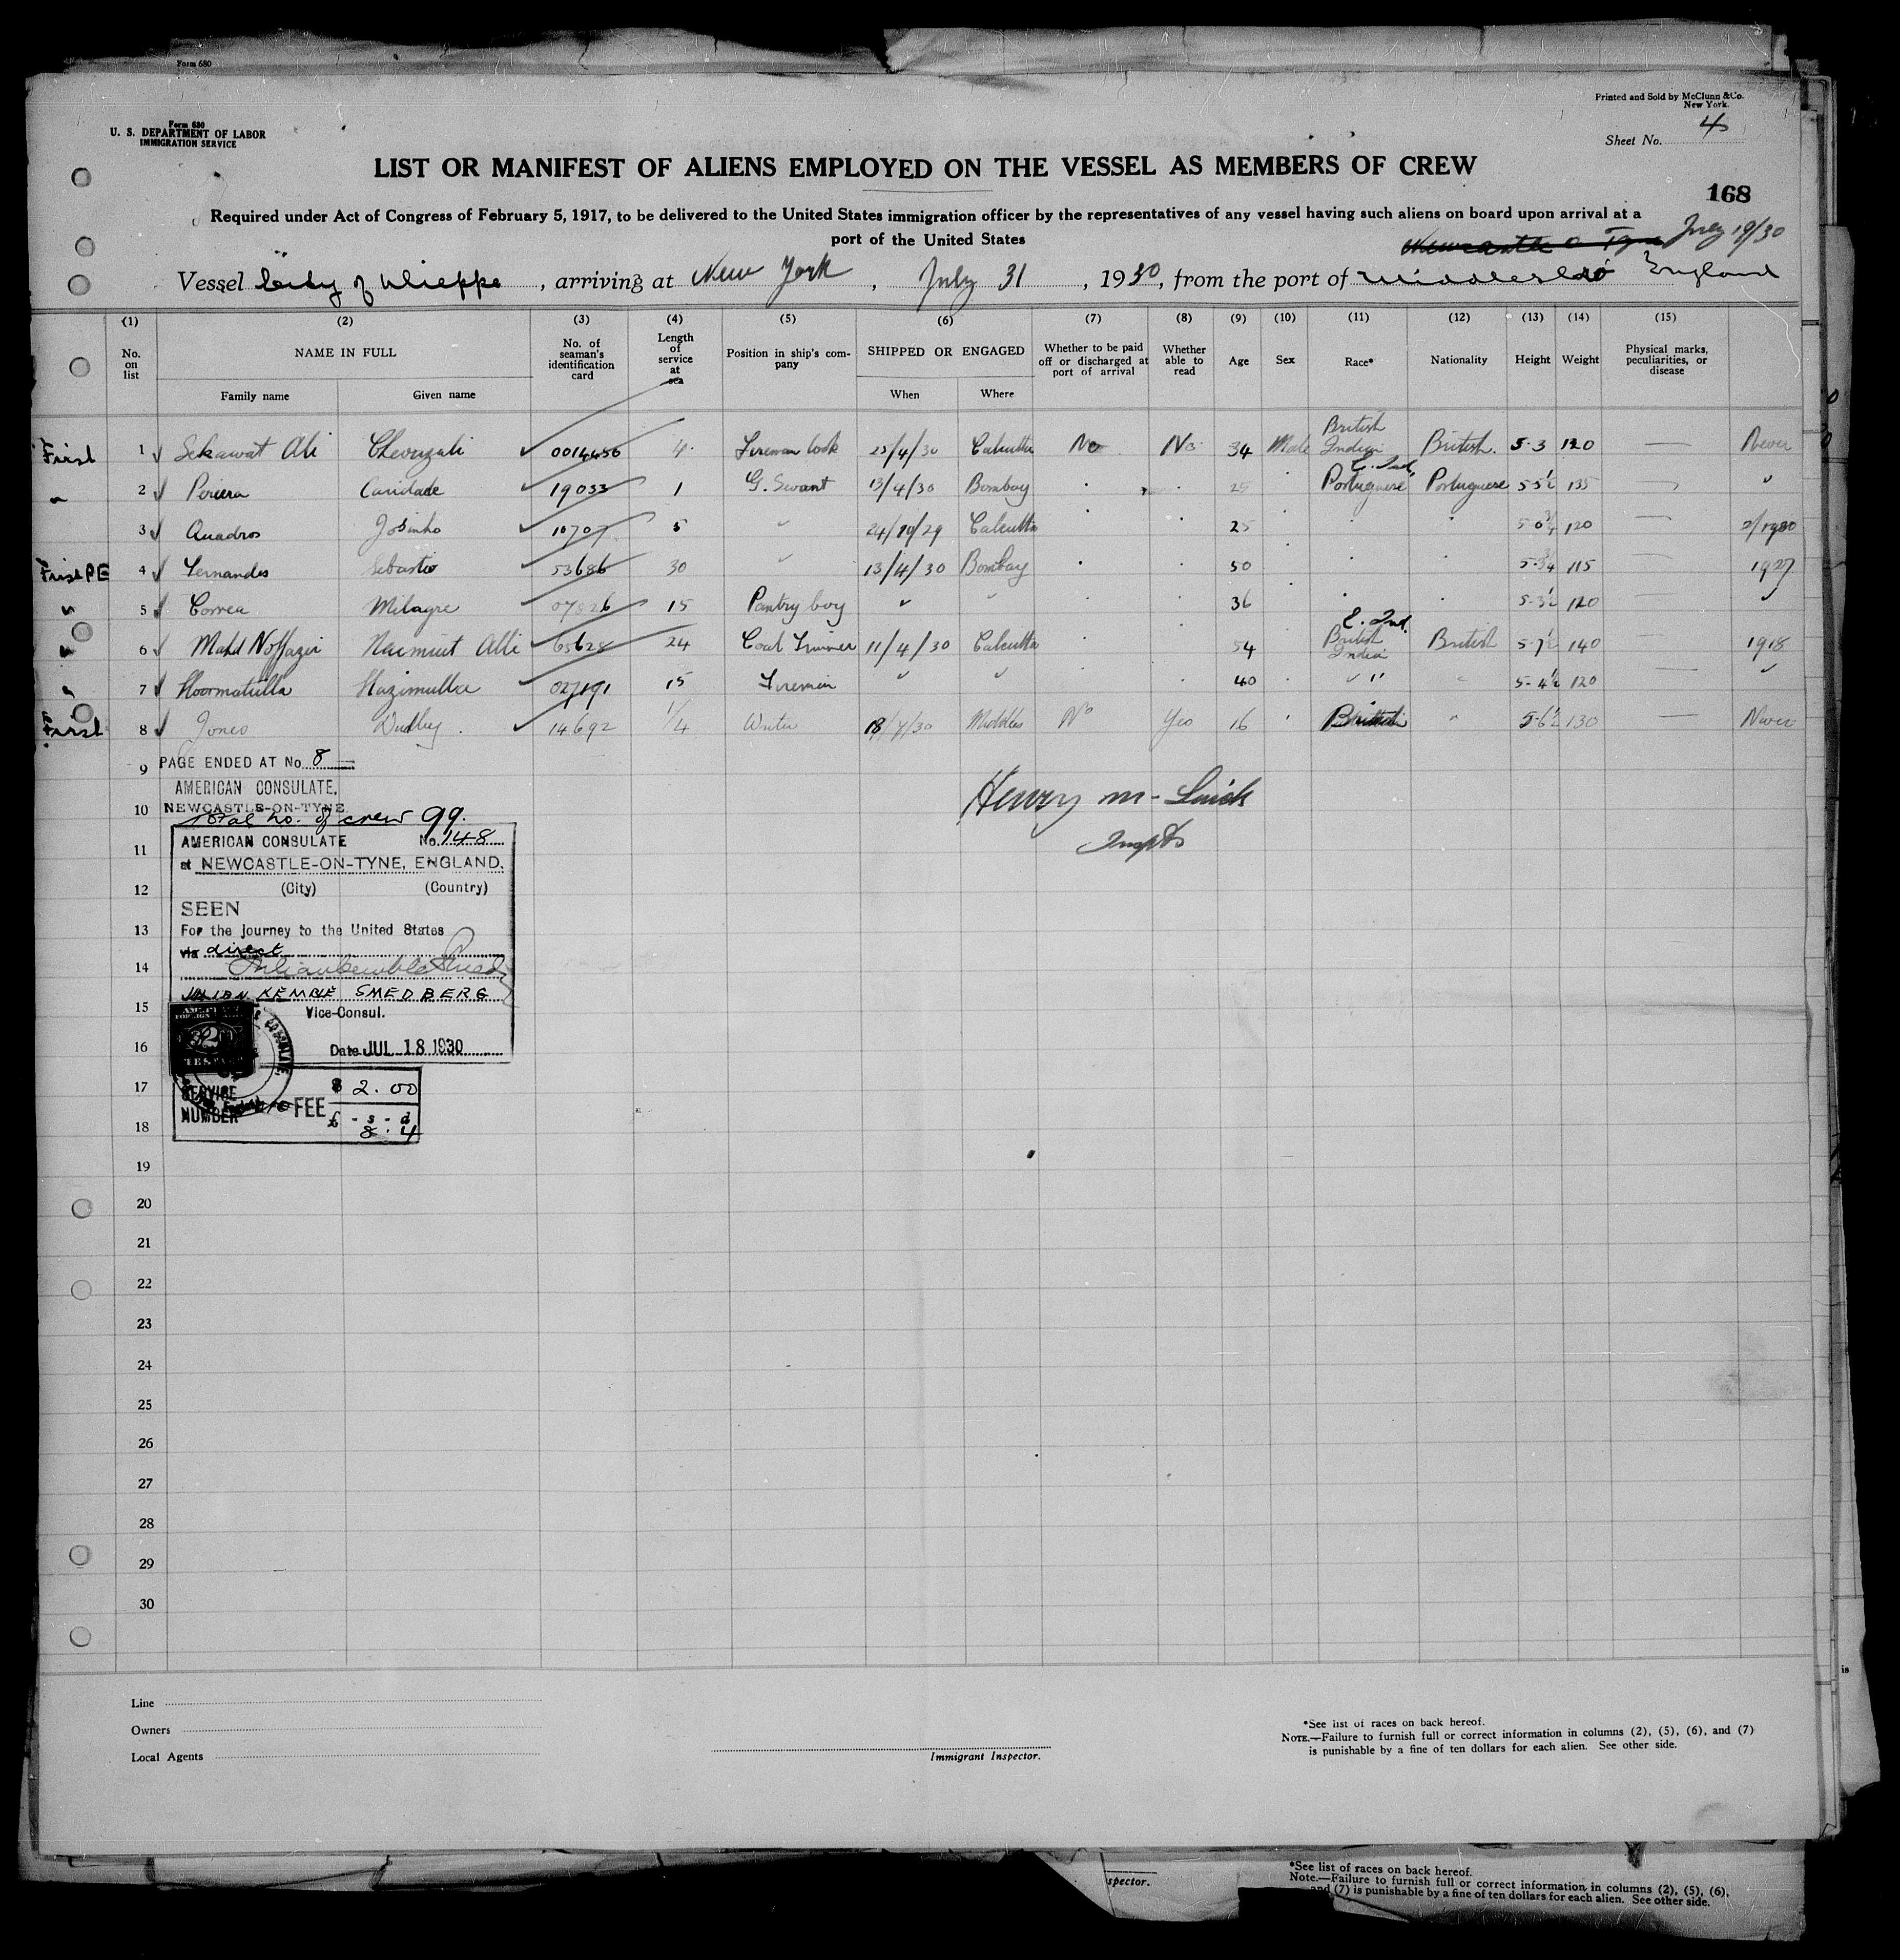 Form 680
Printed and Sold by McClunn & Co.
New York.
Form 680
U. S. DEPARTMENT OF LABOR
IMMIGRATION SERVICE
Sheet No. 4
LIST OR MANIFEST OF ALIENS EMPLOYED ON THE VESSEL AS MEMBERS OF CREW
168
Required under Act of Congress of February 5, 1917, to be delivered to the United States immigration officer by the representatives of any vessel having such aliens on board upon arrival at a
port of the United States
Newcastle o Tyne July 19/30
Vessel City of Dieppe, arriving at New York, July 31, 1930, from the port of Middlesbro England
(1) (2) (3) (4) (5) (6) (7) (8) (9) (10) (11) (12) (13) (14) (15)
No. on list NAME IN FULL Family name Given name No. of seaman's identification card Length of service at sea Position in ship's company SHIPPED OR ENGAGED When Where Whether to be paid off or discharged at port of arrival Whether able to read Age Sex Race* Nationality Height Weight Physical marks, peculiarities, or disease
First 1 Sekawat Ali 0014456 4 Fireman Cook 25/4/30 Calcutta No No 34 Male British Indian British 5-3 120 — Never
" 2 Periera Caridade 19033 1 G. Servant 13/4/30 Bombay 25 E. Ind. Portuguese Portuguese 5-5½ 135 "
3 Quadros Josinho 10707 5 " 24/10/29 Calcutta 25 120 —
First PE 4 Fernandes Sebastio 53686 30 " 13/4/30 Bombay 50 115 — 1927
" 5 Correa Milagre 07826 15 Pantry boy " " 36 5-3½ 120 "
" 6 Mahd 65628 24 Coal Trimmer 11/4/30 Calcutta 54 E. Ind. British India British 5-7½ 140 1918
" 7 Hoormatulla Hazimulla 027191 15 Fireman " " 40 " " " 5-4½ 120 — "
First 8 Jones Dudley 14692 1/4 18/7/30 Middles No Yes 16 British " 5-6½ 130 — Never
9 PAGE ENDED AT No. 8
AMERICAN CONSULATE,
10 NEWCASTLE-ON-TYNE
Total no. of crew 99.
Henry M-
Inspts
AMERICAN CONSULATE No. 148
11
at NEWCASTLE-ON-TYNE, ENGLAND.
12 (City) (Country)
SEEN
13 For the journey to the United States
via direct
14
JULIAN KEMBLE SMEDBERG
15 Vice-Consul.
16 Date JUL 18 1930
17 SERVICE NUMBER FEE $ 2.00
18 £ - s - d
8 . 4
19
20
21
22
23
24
25
26
27
28
29
30
Line
Owners
Local Agents
Immigrant Inspector.
*See list of races on back hereof.
NOTE.—Failure to furnish full or correct information in columns (2), (5), (6), and (7)
is punishable by a fine of ten dollars for each alien. See other side.
spector.
*See list of races on back hereof.
Note.—Failure to furnish full or correct information in columns (2), (5), (6),
and (7) is punishable by a fine of ten dollars for each alien. See other side.